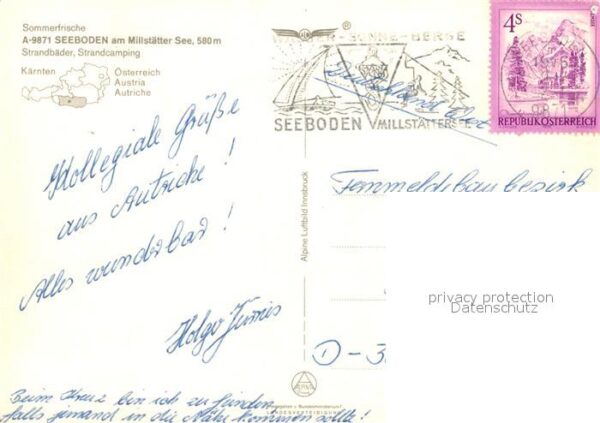 Sommerfrische
A-9871 SEEBODEN am Millstätter See, 580 m
Strandbäder, Strandcamping
Kärnten
Österreich
Austria
Autriche
-SONNE-BERGE
SEEBODEN MILLSTÄTTERSEE
4S
REPUBLIK ÖSTERREICH
Kollegiale Grüße
aus Autriche!
Alles wunderbar!
Holger
Beim Kreuz bin ich zu finden
falls jemand in die Nähe kommen sollte!
Alpine Luftbild Innsbruck
Fernmeldebaubezirk
privacy protection
Datenschutz
D-3
LANDESVERTEIDIGUNG